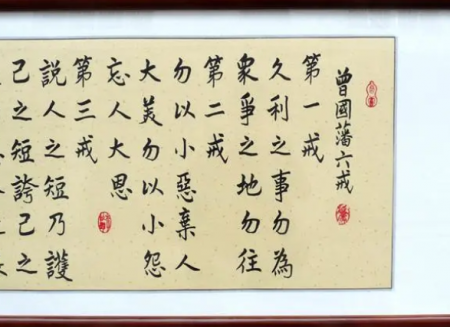 曾國藩六戒
第一戒
久利之事勿為
衆爭之地勿往
第二戒
勿以小惡棄人
大美勿以小怨
忘人大恩
第三戒
說人之短乃護
己之短誇己之